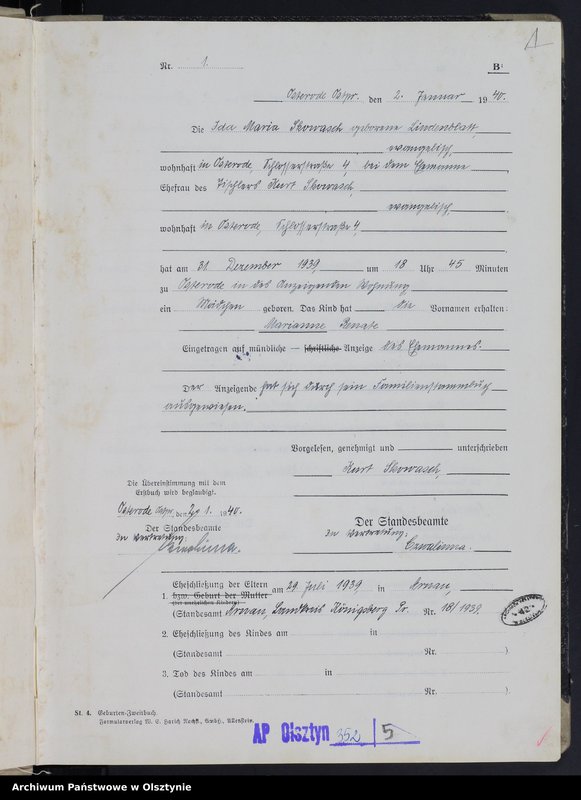 1
Nr. 1. B
Osterode Ostpr. den 2. Januar 1940.
Die Ida Maria Skowasch geborene Lindenblatt,
evangelisch,
wohnhaft in Osterode, Schlosserstraße 4, bei dem Ehemanne
Ehefrau des Tischlers Kurt Skowasch,
evangelisch,
wohnhaft in Osterode, Schlosserstraße 4,
hat am 31. Dezember 1939 um 18 Uhr 45 Minuten
zu Osterode in des Anzeigenden Wohnung
ein Mädchen geboren. Das Kind hat die Vornamen erhalten:
Marianne Renate
Eingetragen auf mündliche – schriftliche – Anzeige des Ehemannes.
Der Anzeigende hat sich durch sein Familienstammbuch
ausgewiesen.
Vorgelesen, genehmigt und unterschrieben
Kurt Skowasch,
Die Übereinstimmung mit dem
Erstbuch wird beglaubigt.
Osterode Ostpr., den 2. 1. 1940.
Der Standesbeamte
In Vertretung:
Der Standesbeamte
In Vertretung:
Czwalinna.
1. Eheschließung der Eltern
bzw. Geburt der Mutter
(bei unehelichen Kindern)
am 29. Juli 1939 in Arnau,
(Standesamt Arnau, Landkreis Königsberg Pr. Nr. 18/1939.
2. Eheschließung des Kindes am in
(Standesamt Nr. ).
3. Tod des Kindes am in
(Standesamt Nr. ).
St. 4. Geburten-Zweitbuch.
Formularverlag W. E. Harich Nachf., GmbH., Allenstein.
AP Olsztyn 352 5
Archiwum Państwowe w Olsztynie